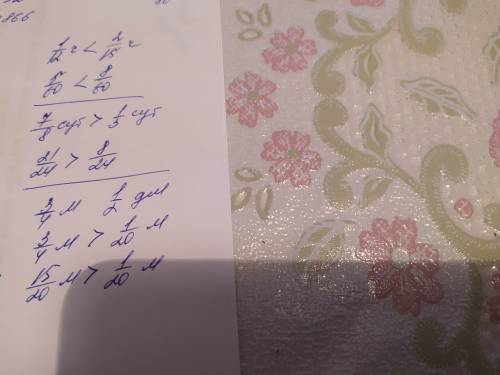 866
1/12 г < 2/15 г
5/60 < 8/60
7/8 сут > 1/3 сут
21/24 > 8/24
3/4 м 1/2 дм
3/4 м > 1/20 м
15/20 м > 1/20 м